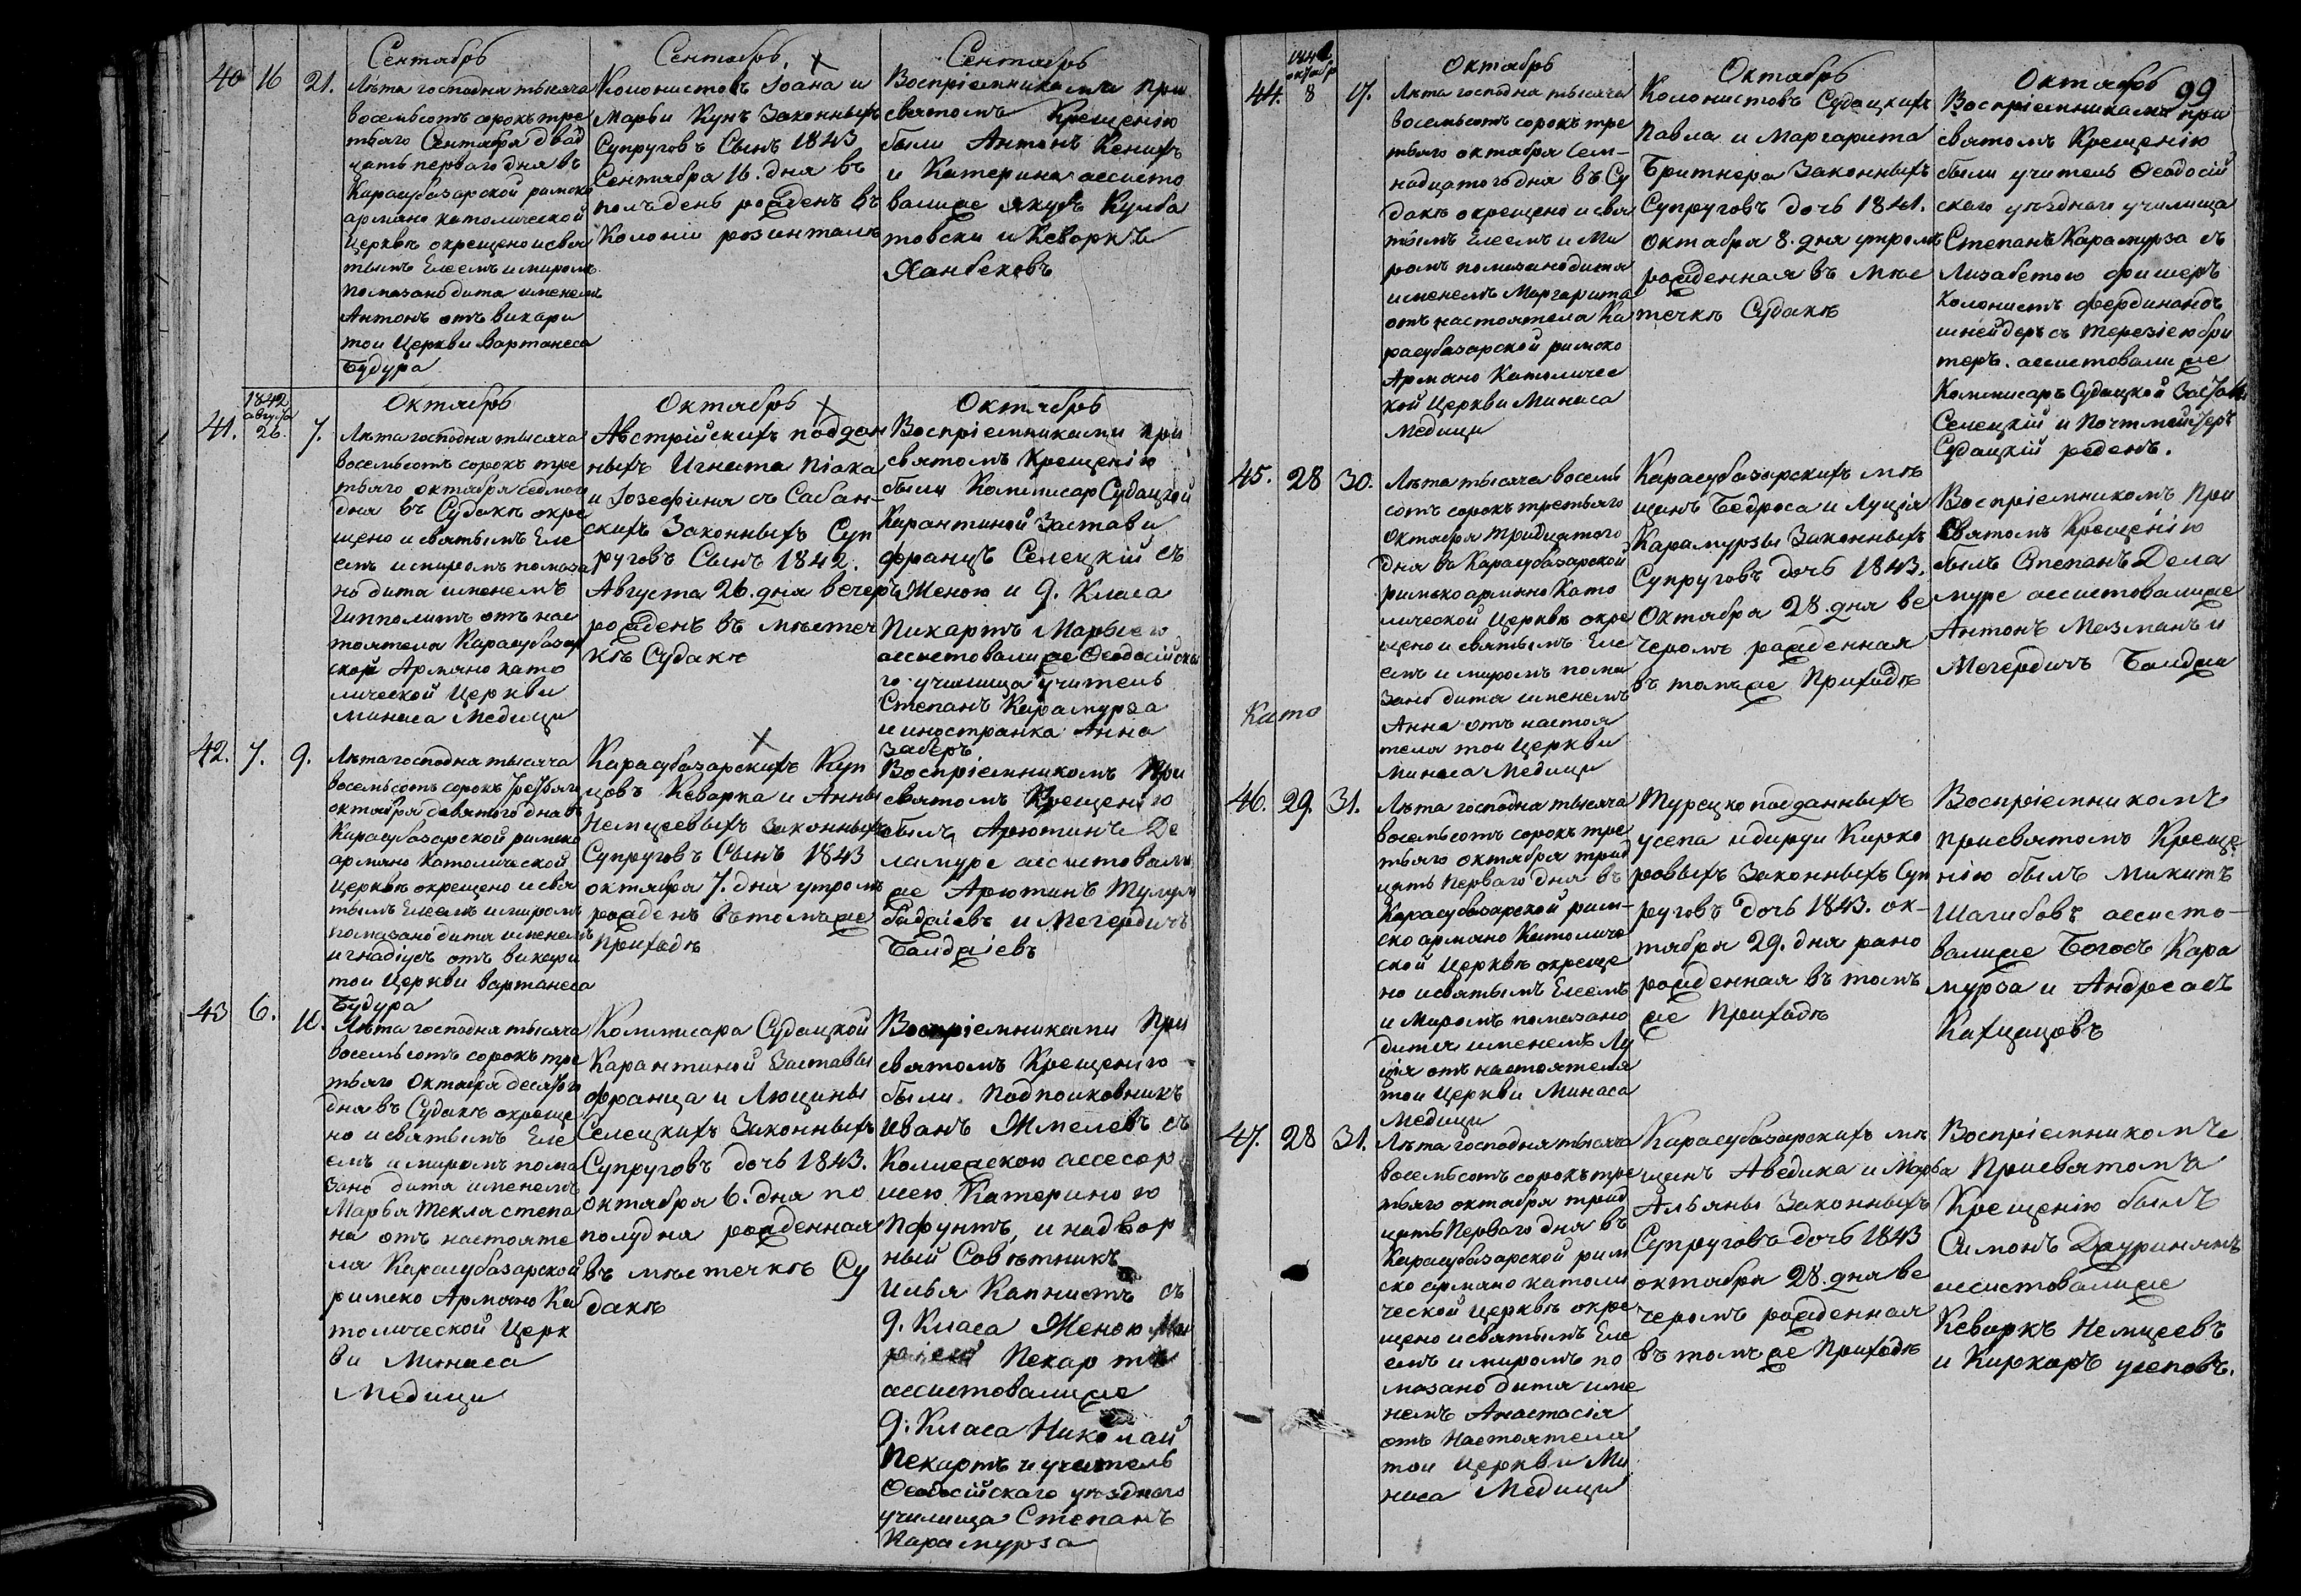 Сентябрь
40 16 21.
Лѣта господня тысяча
восемьсотъ сорокъ тре
тьяго Сентября двад
цать перваго дня въ
Карасубазарской римско
армяно католической
Церквѣ окрещено и свя
тымъ Елеемъ и миромъ
помазано дитя именемъ
Антонъ отъ викари
той Церкви Вартанеса
Будура
Сентябрь
Колонистовъ Іоана и
Марьи Кунъ Законныхъ
Супруговъ Сынъ 1843
Сентября 16. дня въ
полъдень рожденъ въ
Колоніи розинталь
Сентябрь
Воспріемниками при
святомъ Крещенію
были Антонъ Кенихъ
и Катерина ассисто
валиже Якубъ Кумба
товски и Кеворкъ
Ханбековъ
1842
августа
41. 26. 7.
Октябрь
Лѣта господня тысяча
восемьсотъ сорокъ тре
тьяго октября седмого
дня въ Судакѣ окре
щено и святымъ Еле
емъ и миромъ помаза
но дитя именемъ
Гипполитъ отъ нас
тоятеля Карасубазар
ской Армяно като
лической Церкви
Минаса Медици
Октябрь
Австрійскихъ поддан
ныхъ Игната Піака
и Іозефиня съ Сабан-
скихъ Законныхъ Суп
руговъ Сынъ 1842.
Августа 26. дня вечеръ
рожденъ въ мѣстеч
кѣ Судакѣ
Октябрь
Воспріемниками при
святомъ Крещенію
были Коммисар Судацкой
Карантиной Застави
францъ Селецкій съ
Женою и 9. Класа
Пикартъ Марьею
ассистовалиже Ѳеодосійска
го училища учитель
Степанъ Карамурза
и иностранка Анна
Заберъ
42. 7. 9.
Лѣта господня тысяча
восемьсотъ сорокъ третьяго
октября девятого дна въ
Карасубазарской римско
армяно Католической
Церквѣ окрещено и свя
тымъ Елеемъ и миромъ
помазано дитя именемъ
игнадіусъ отъ викари
той Церкви вартанеса
Будура
Карасубазарскихъ Куп
цовъ Кеворка и Анны
Немцеевыхъ Законныхъ
Супруговъ Сынъ 1843
октября 7. дня утромъ
рожденъ въ томъже
Приходѣ
Воспріемникомъ При
святомъ Крещенію
былъ Арютинъ Де
ламуре ассистовали
же Арютинъ Тумум
баджіевъ и Мегердичъ
Балджіевъ
43 6. 10.
Лѣта господня тысяча
восемьсотъ сорокъ тре
тьяго Октября десятого
дня въ Судакѣ окреще
но и святымъ Еле
емъ и миромъ пома
зано дитя именемъ
Марья Текля степа
на отъ настояте
ля Карасубазарской
римско Армяно Ка
толической Церк
ви Минаса
Медици
Коммисара Судацкой
Карантиной Заставы
франца и Люцины
Селецкихъ Законныхъ
Супруговъ дочь 1843.
октября 6. дня по
полудня рожденная
въ мѣстечкѣ Су
дакѣ
Воспріемниками При
святомъ Крещенію
были. Подполковникъ
Иванъ Жмелевъ съ
Колежскою ассесор
шею Катериною
Пфунтъ, и надвор
ный Совѣтникъ
Илья Капнистъ съ
9. Класа Женою
Пекар
ассистовалиже
9. Класа Николай
Пекартъ и учитель
Ѳеодосійскаго уѣзднаго
училища Степанъ
Карамурза
99
октабр
44. 8 17.
Октябрь
Лѣта господня тысяча
восемьсотъ сорокъ тре
тьяго октября Сем-
надцатого дня въ Су
дакѣ окрещено и свя
тымъ Елеемъ и Ми
ромъ помазано дитя
именемъ Маргарита
отъ настоятеля Ка
расубазарской римско
Армяно Католичес
кой Церкви Минаса
Медици
Октябрь
Колонистовъ Судацкихъ
Павла и Маргарита
Бритнера Законныхъ
Супруговъ дочь 1841.
октября 8. дня утромъ
рожденная въ мѣс
течкѣ Судакѣ
Октябрь
Воспріемниками при
святомъ Крещенію
были учитель Ѳеодосій
скаго уѣзднаго училища
Степанъ Карамурза съ
Лизабетою фишеръ
Колонистъ фердинандъ
шнейдеръ съ терезіею бри
теръ. ассистовалиже
Коммисаръ Судацкой Заставы
Селецкій и Почтмейстеръ
Судацкій реденъ.
45. 28 30.
Лѣта тысяча восемь
сотъ сорокъ третьяго
Октября тридцатого
дня въ Карасубазарской
римско армяно Като
лической Церквѣ окре
щено и святымъ Еле
емъ и миромъ пома
зано дитя именемъ
Анна отъ настоя
теля той Церкви
Минаса Медици
Карасубазарскихъ мѣ
щанъ Бедроса и Луція
Карамурзы Законныхъ
Супруговъ дочь 1843.
Октября 28. дня ве
черомъ рожденная
въ томъже Приходѣ
Воспріемникомъ При
Святомъ Крещенію
былъ Степанъ Дела
муре ассистовалиже
Антонъ Мазманъ и
Мегердичъ Балджи
Като
46. 29. 31.
Лѣта господня тысяча
восемьсотъ сорокъ тре
тьяго октября трид
цать Перваго дня въ
Карасубазарской рим-
ско армяно Католиче
ской Церквѣ окреще
но и святымъ Елеемъ
и Миромъ помазано
дитя именемъ Лу
ція отъ настоятеля
той Церкви Минаса
Медици
Турецко подданныхъ
усепа идирди Кирко
ровыхъ Законныхъ Суп
руговъ дочь 1843. ок-
тября 29. дня рано
рожденная въ томъ
же Приходѣ
Воспріемникомъ
при святомъ Креще
нію былъ Микитъ
Шагибовъ ассисто-
валиже Богосъ Кара
мурза и Андреасъ
Кахцацовъ
47. 28 31.
Лѣта господня тысяча
восемьсотъ сорокъ тре
тьяго октября трид
цать Перваго дня въ
Карасубазарской рим
ско армяно католи
ческой Церквѣ окре
щено и святымъ Еле
емъ и миромъ по
мазано дитя име
немъ Анастасія
отъ Настоятеля
той Церкви Ми
наса Медици
Карасубазарскихъ мѣ
щанъ Аведика и Марья
Альяны Законныхъ
Супруговъ дочь 1843
октября 28. дня ве
черомъ рожденная
въ томъже Приходѣ
Воспріемникомъ
При святомъ
Крещенію былъ
Симонъ Дауринянъ
ассистовалиже
Кеворкъ Немцеевъ
и Киркоръ усеповъ.